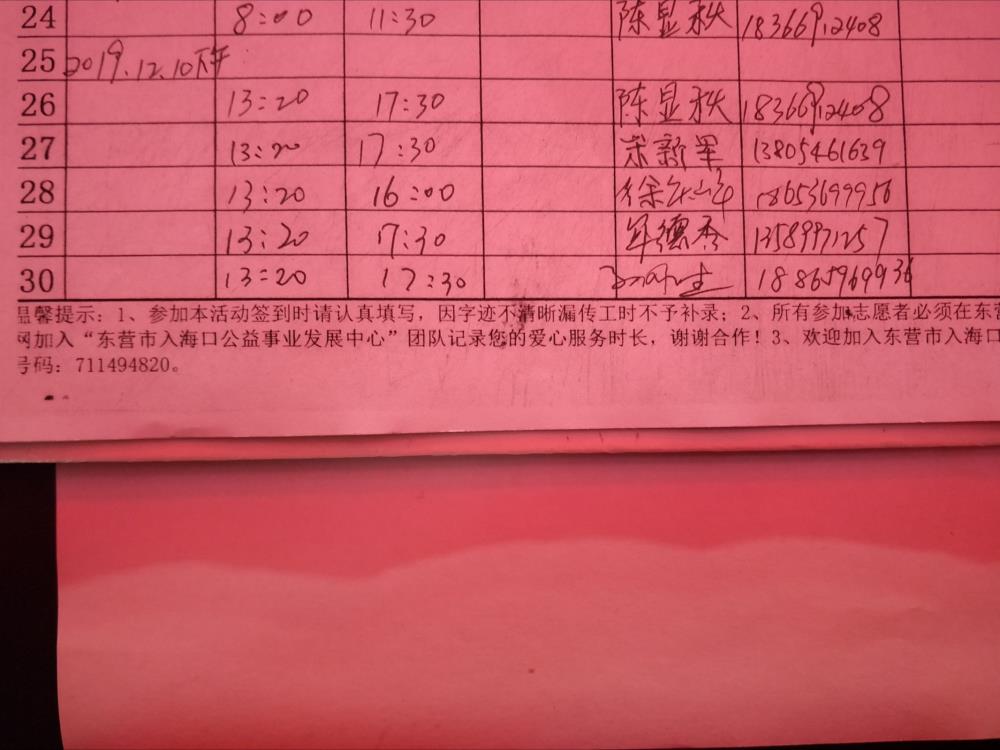 24 8:00 11:30 陈显秋 18366912408
25 2019.12.10下午
26 13:20 17:30 陈显秋 18366912408
27 13:20 17:30 宋新军 13805461639
28 13:20 16:00 徐 18653699956
29 13:20 17:30 牟德秀 13589971257
30 13:20 17:30 18865969936
温馨提示：1、参加本活动签到时请认真填写，因字迹不清晰漏传工时不予补录；2、所有参加志愿者必须在东营
网加入“东营市入海口公益事业发展中心”团队记录您的爱心服务时长，谢谢合作！3、欢迎加入东营市入海口
号码：711494820。